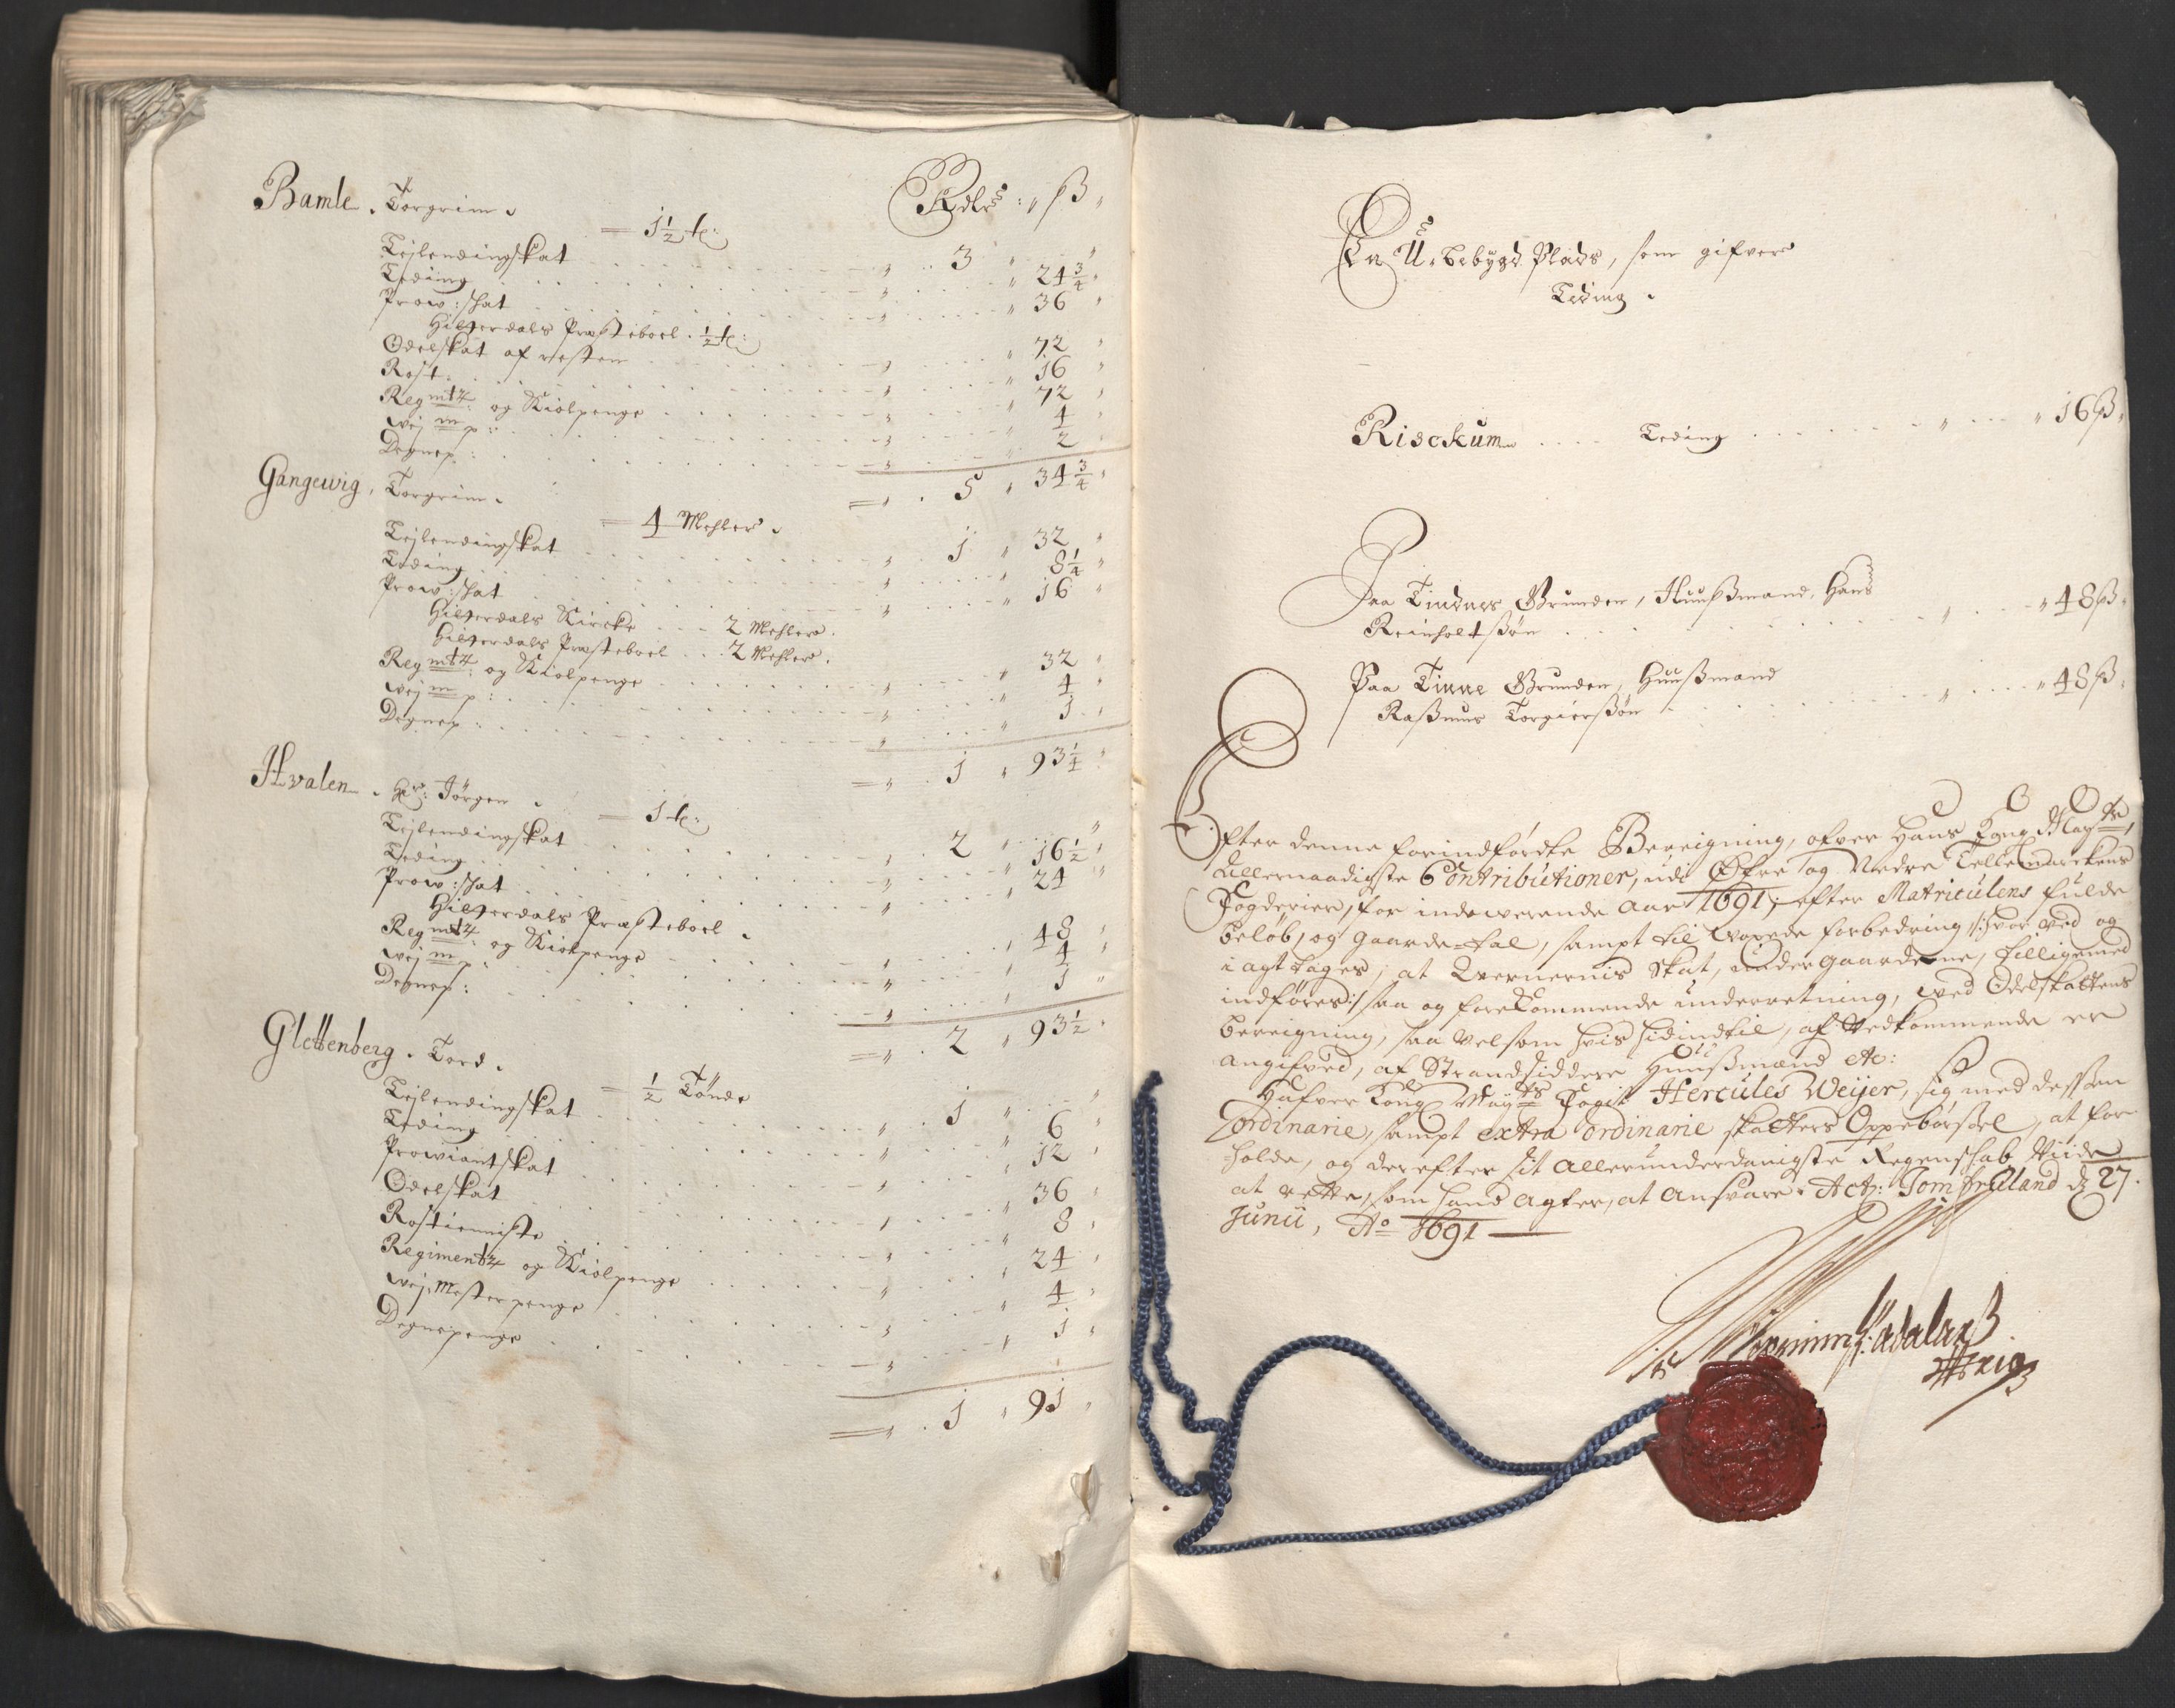 Bamle. Torgrim. Rdlr: ß
= 1½ t:
Lejlendingskat 3 "
Leding " 24¾
Prow:skat " 36
Hitterdals Præsteboel. ½ t:
Odelskat af resten " 72
Rost: " 16
Reg mtz: og Kiolpenge " 72
Wej m p: " 4
Degnep: " 2
= 5 " 34¾
Gangewig, Torgrim.
= 4 Mehler.
Lejlendingskat 1 " 32
Leding " 8¼
Prow:skat " 16
Hitterdals Kircke 2 Mehler.
Hitterdals Præsteboel 2 Mehler.
Reg mtz: og Kiolpenge " 32
Wej m p: " 4
Degnep: " 1
= 1 " 93¼
Hvalen. Hr: Jörgen.
= 1 t:
Lejlendingskat 2 "
Leding " 16½
Prow:skat " 24
Hitterdals Præsteboel.
Reg mtz: og Kiolpenge " 48
Wej m p: " 4
Degnep: " 1
= 2 " 93½
Glettenberg. Tord.
= ½ Tönde
Lejlendingskat 1 "
Leding " 6
Prowiantskat " 12
Odelskat " 36
Rostienniste " 8
Regimentz og Kiolpenge " 24
Wej Mester penge " 4
Degnepenge " 1
= 1 " 91
En U-bebygd Plads, som gifver
Leding.
Risckum Leding " 16 ß
Paa Tindnes Grunden, Huußmand, Hans
Reinholtßön " 48 ß.
Paa Tinne Grunden, Huußmand
Raßmus Torgierßön " 48 ß.
Efter denne forindfördte Bereigning, ofver Hans Kong May:tz
Allernaadigste Contributioner, udi Øfre og Nedre Tellemarckens
Fogderier, for indewerende Aar 1691; efter Matriculens fulde
beløb, og gaarde-tal, sampt til voxede forbedring /: hvor ved og
i agt tages, at Qvernernis Skat, under gaardene, tilligemed
indføres :/ saa og forekommende underretning, ved Odelskattens
bereigning, saa velsom hvis hidindtil, af Vedkommende er
angifved, af Strandsiddere Huußmænd etc:
Hafver Kong May:ts Fogit Hercules Weijer, sig med dessen
ordinarie, sampt extra ordinarie skatters Oppebørsel, at for
holde, og derefter sit allerunderdanigste Regenskab viide
at rette, som hand agter, at ansvare. Act: Jomfruland d 27.
Junii, Ao 1691